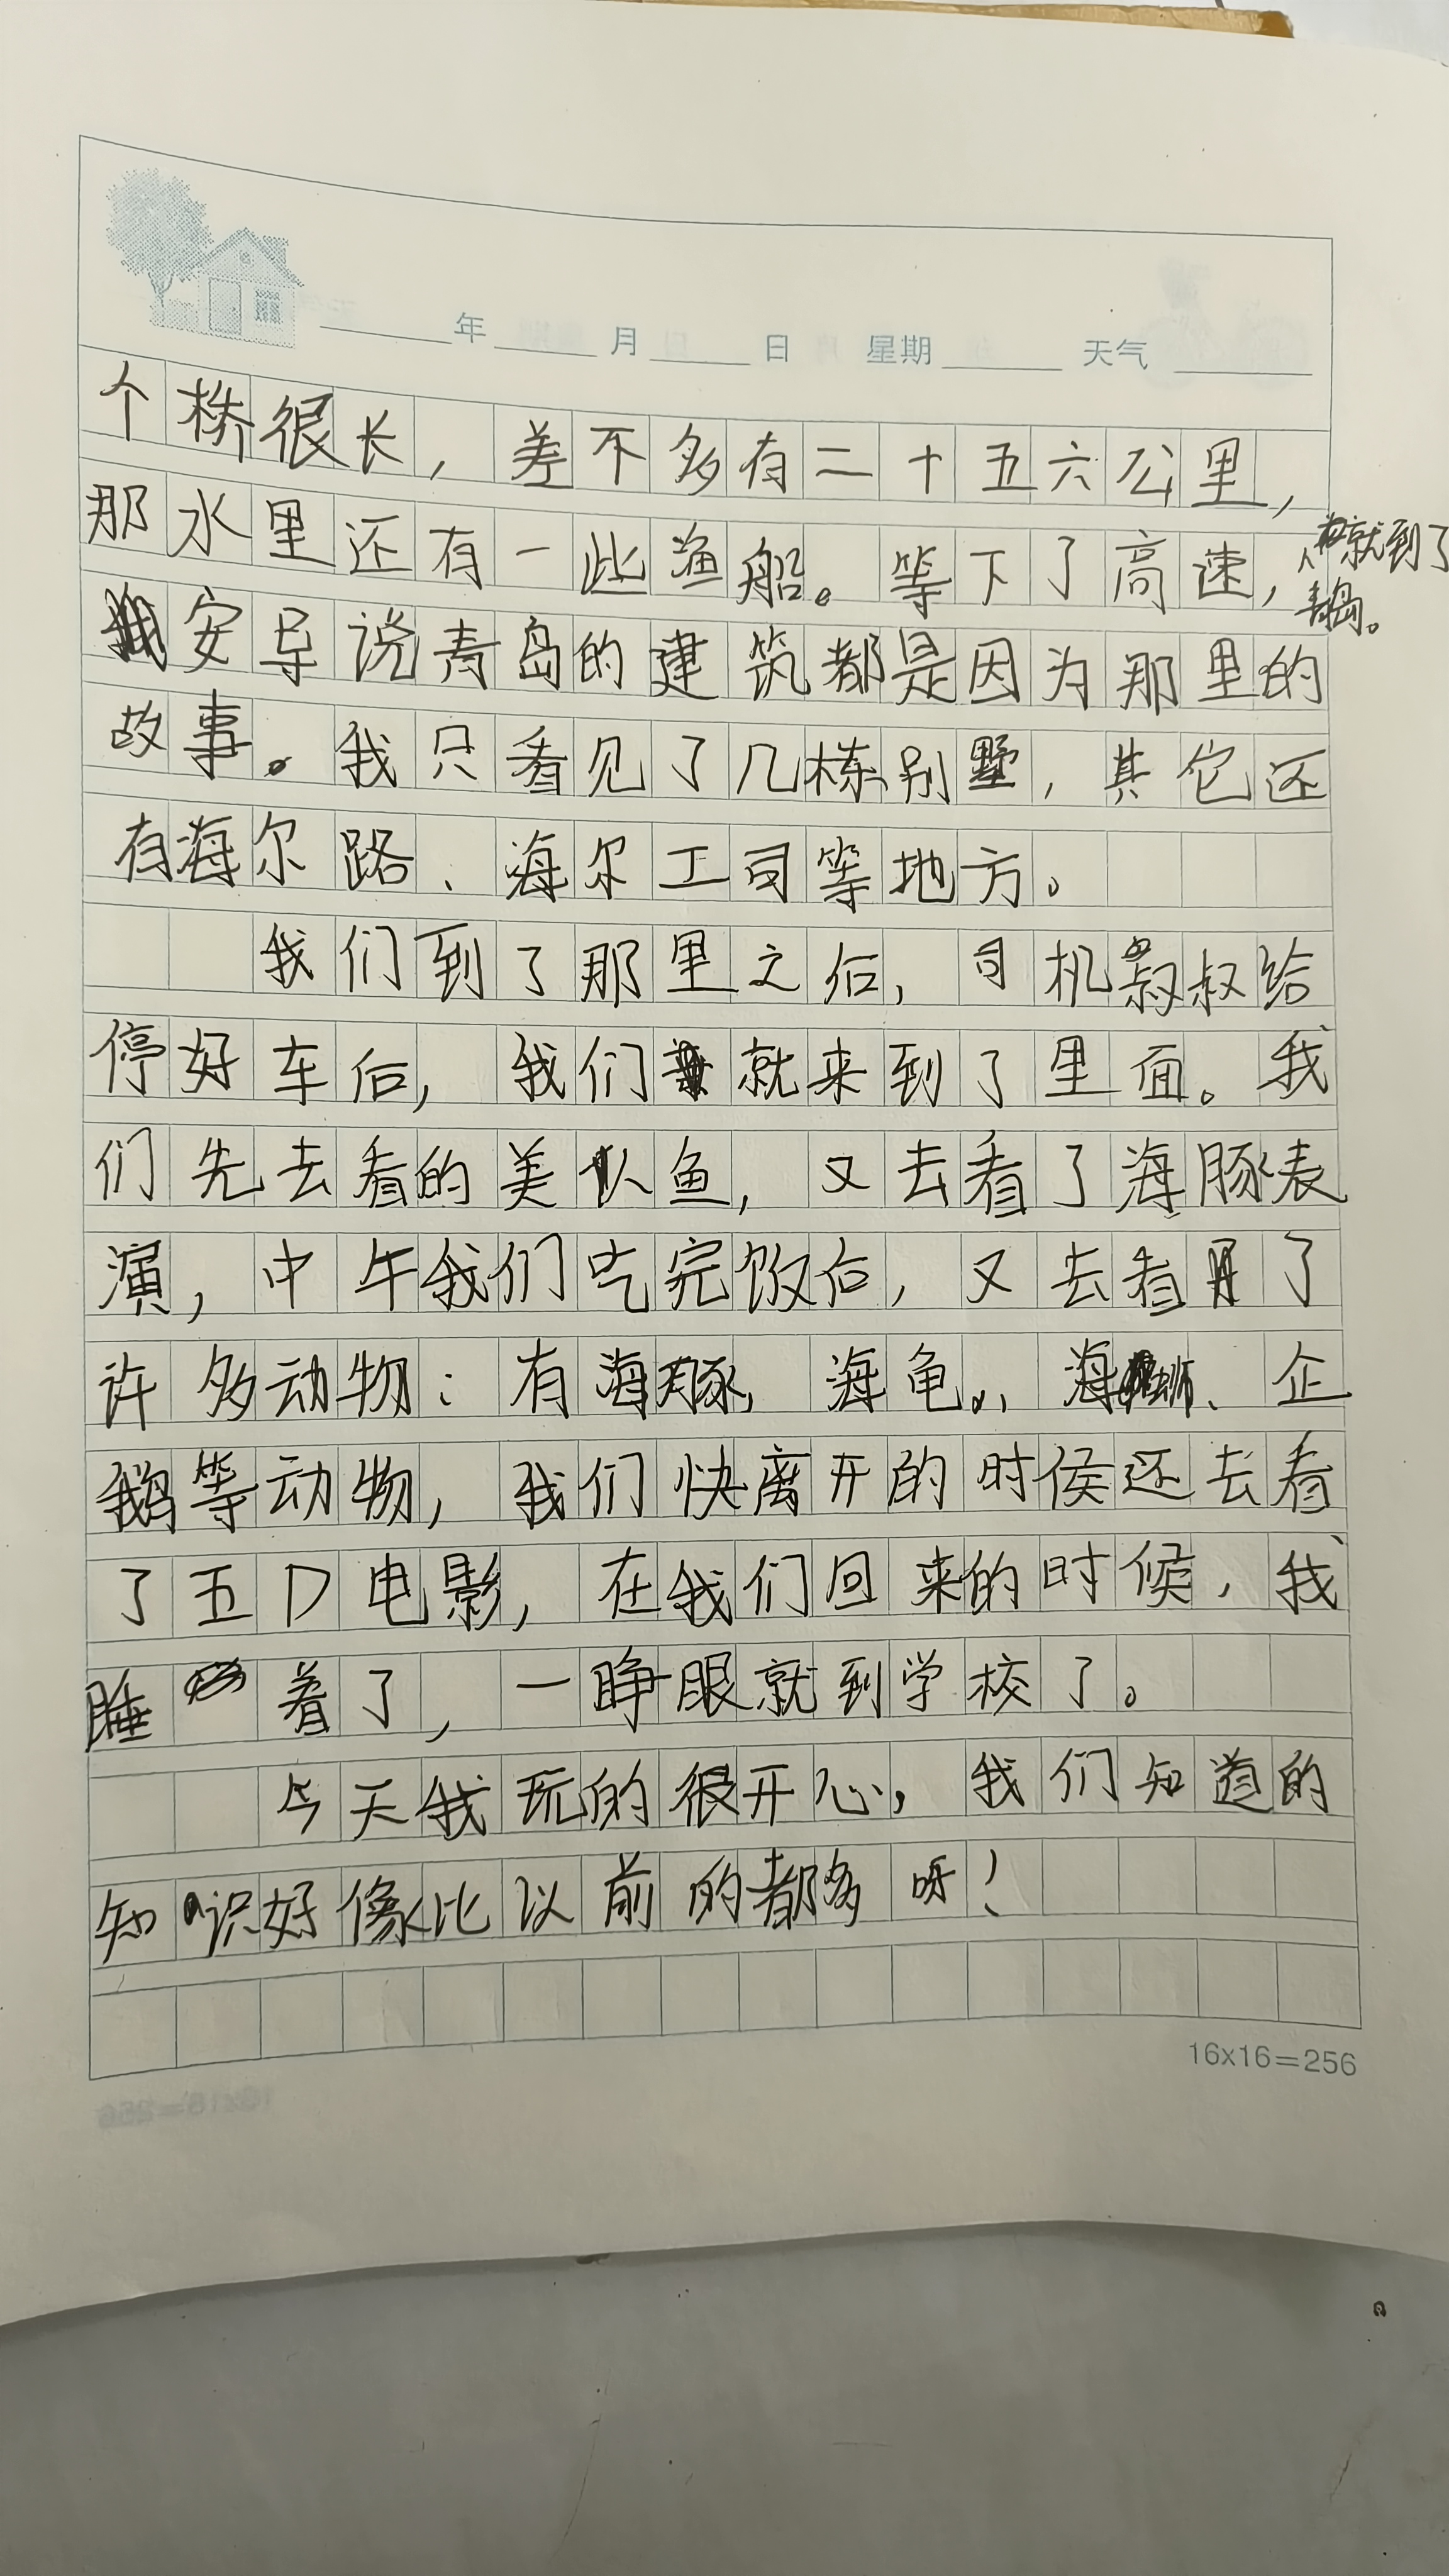 年 月 日 星期 天气
个桥很长，差不多有二十五六公里，
那水里还有一些渔船。等下了高速，就到了青岛。
安导说青岛的建筑都是因为那里的
故事。我只看见了几栋别墅，其它还
有海尔路、海尔工司等地方。
我们到了那里之后，司机叔叔给
停好车后，我们就来到了里面。我
们先去看的美人鱼，又去看了海豚表
演，中午我们吃完饭后，又去看了
许多动物：有海豚，海龟、海狮、企
鹅等动物，我们快离开的时侯还去看
了五D电影，在我们回来的时候，我
睡着了，一睁眼就到学校了。
今天我玩的很开心，我们知道的
知识好像比以前的都多呀！
16x16=256